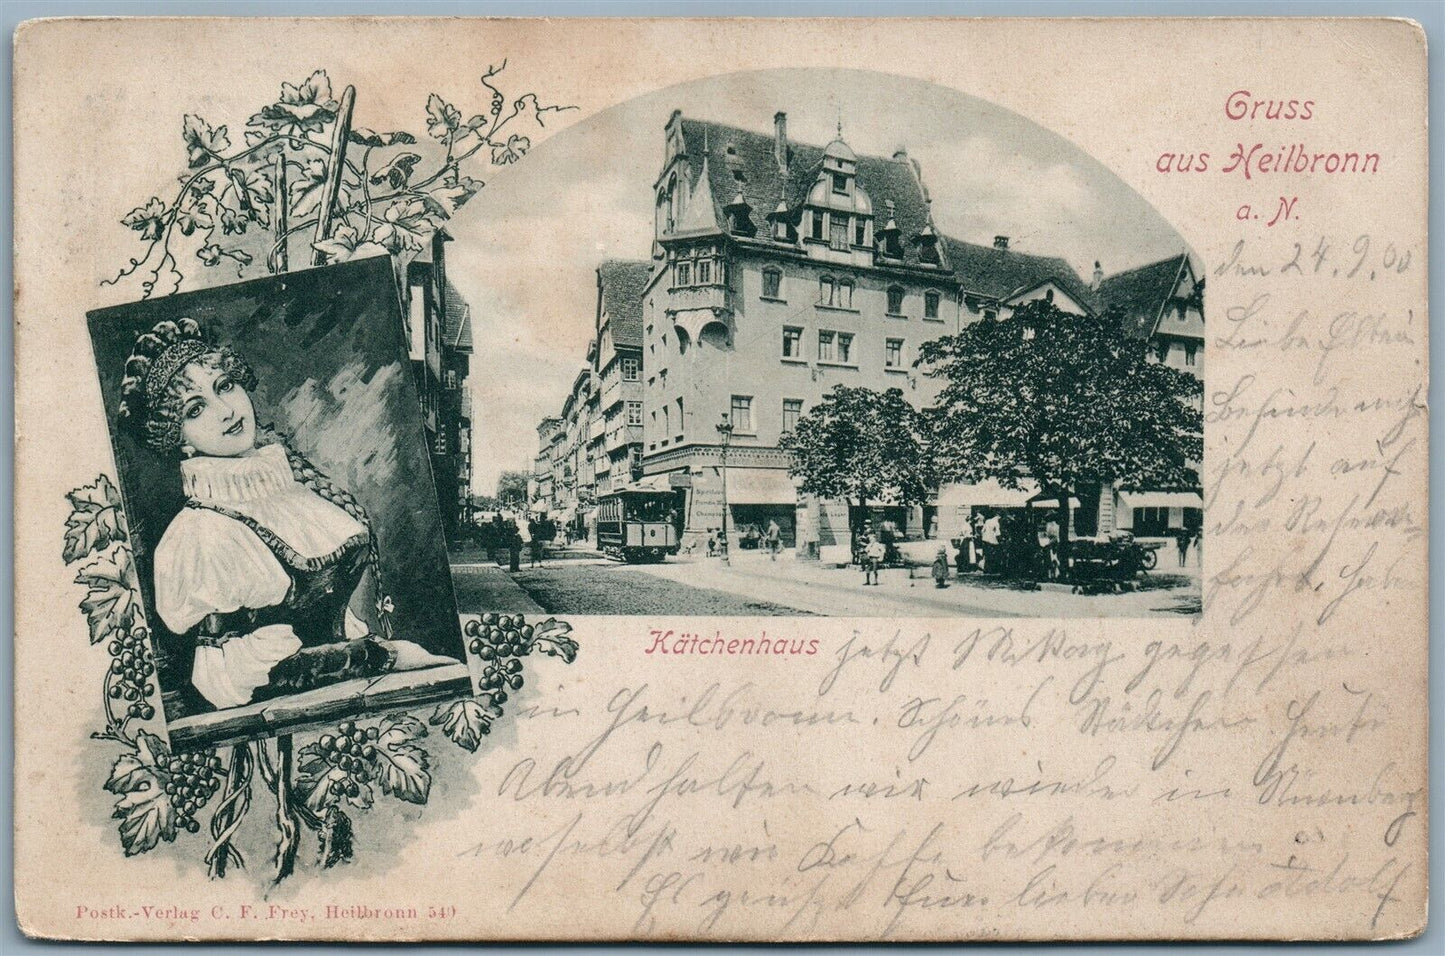 Gruss
aus Heilbronn
a. N.
den 24.9.00
Liebe Eltern
Befinde mich
jetzt auf
der Reserve=
fahrt, haben
Kätchenhaus
jetzt Mittag gegessen
in Heilbronn. Schönes Städtchen. Heute
Abend halten wir wieder in Nürnberg
woselbst wir Kaffe bekommen
Es grüßt Euer lieber Sohn Adolf
Postk.-Verlag C. F. Frey, Heilbronn 540